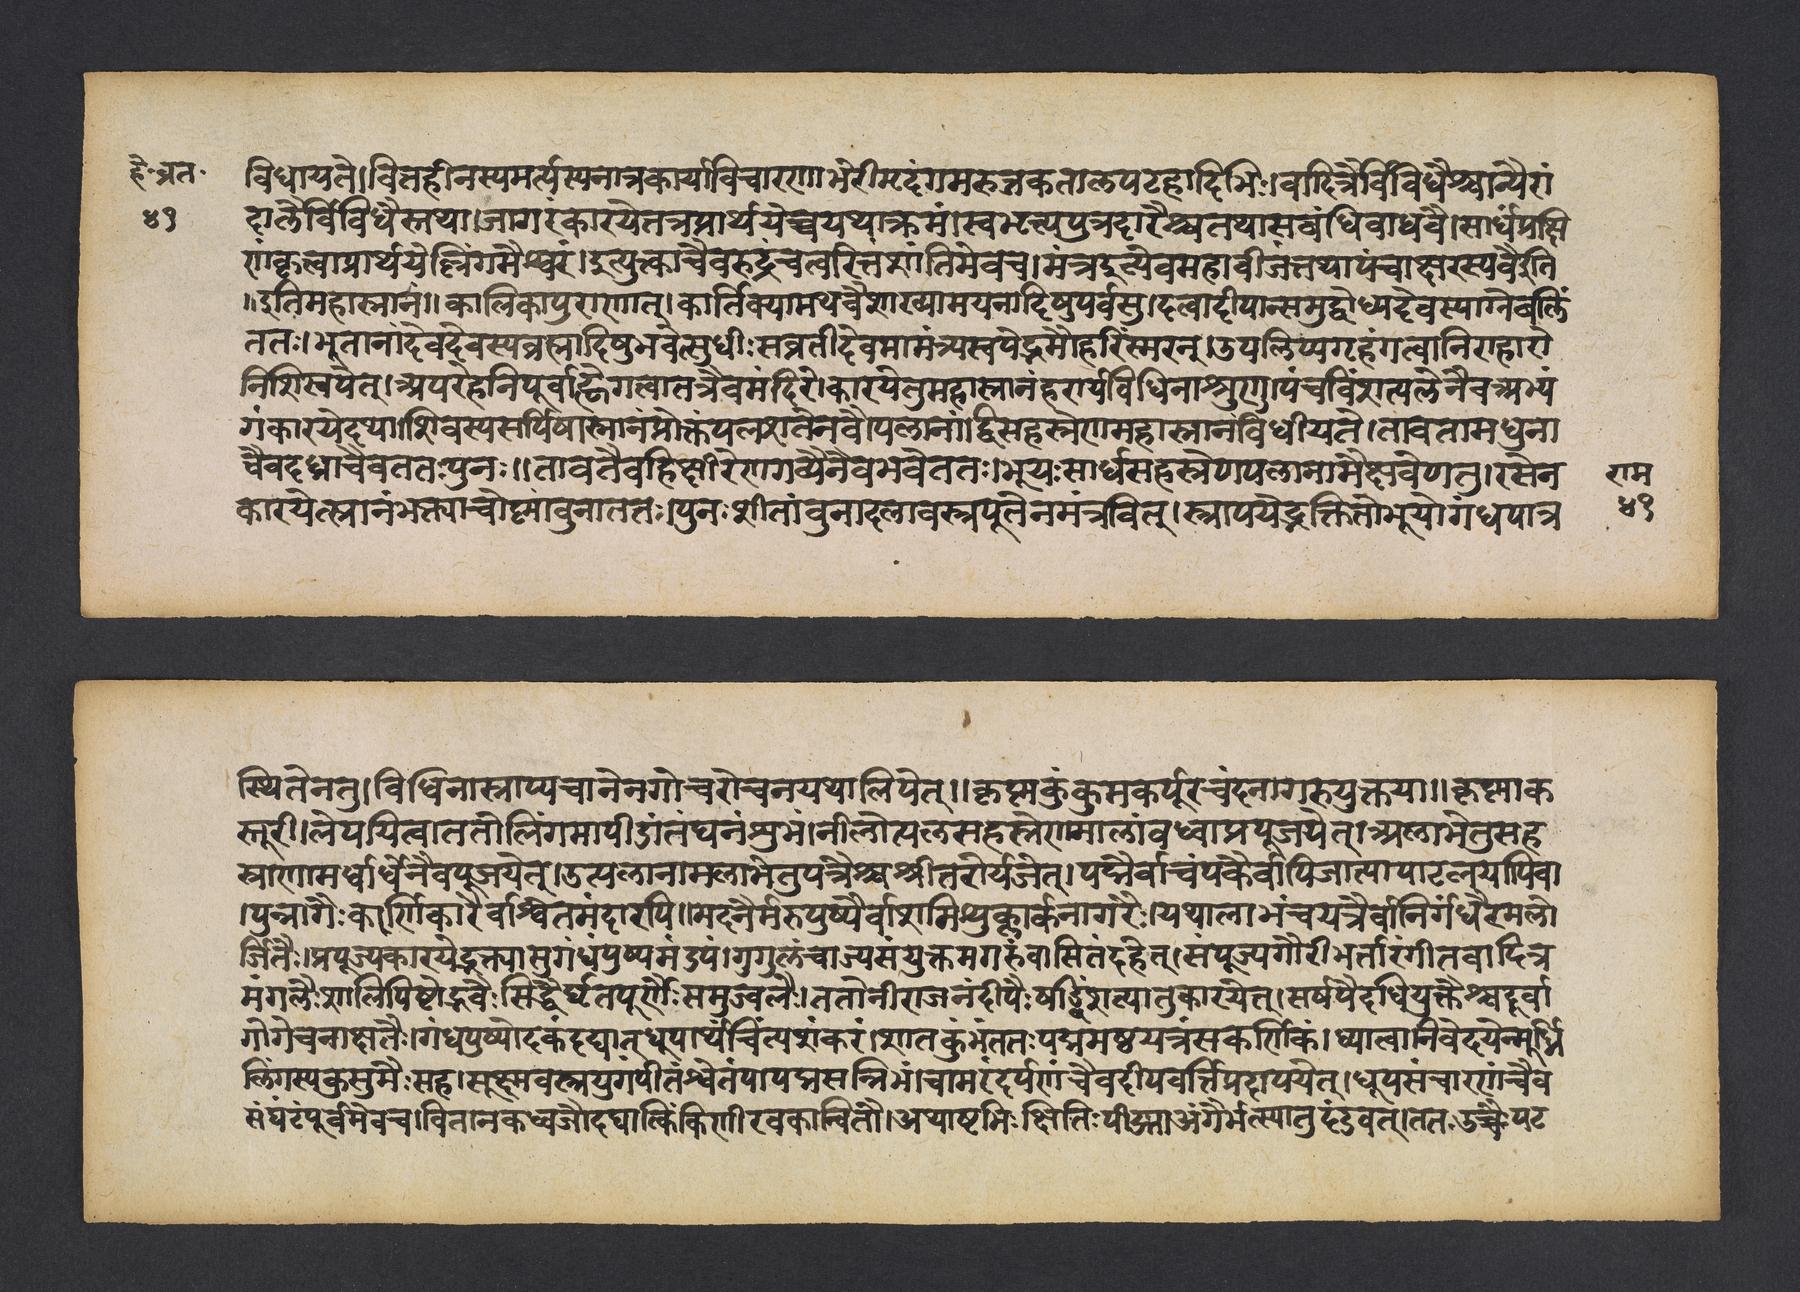 हे॰व्रत॰
४१
विधायते।वित्तहीनस्यमर्त्यस्यनात्रकार्याविचारणा।भेरीमृदंगमरुजकतालपटहादिभिः।वादित्रैर्विविधैश्चान्यैरां
दालैर्विविधैस्तथा।जागरंकारयेतत्रप्रार्थयेच्चयथाक्रमं।स्वभृत्यपुत्रदारैश्चतथासंवंधिवाधवै।सार्धंप्रसि
णंकृत्वाप्रार्थयेल्लिंगमैश्वरं।इत्युक्त्काचैवरुद्रंचत्वरित्तंशांतिमेवच।मंत्रइत्येवमहावीजंतथापंचाक्षरस्यवैइति
॥इतिमहास्नानं॥कालिकापुराणात्।कार्तिक्यामथवैशाख्यामयनादिषुपर्वसु।दत्वादीपान्समुद्बोध्यदेवस्याग्नेर्वलिं
ततः।भूतानांदेवदेवस्यव्रह्मादिषुभवेत्सुधीःसव्रतीदेवमामंत्र्यस्वपेद्भूमौहरिंस्मरन्।उपलिप्यगृहंगत्वानिराहारो
निशिस्वपेत्।अपरेहनिपूर्वाह्णेगत्वातत्रैवमंदिरे।कारयेतुमहास्नानंहरार्यविधिनाशृणु।पंचविंशत्पलेनैवअभ्यं
गंकारयेदथा।शिवस्यसर्पिषास्नानंप्रोक्तंपलशतेनवै।पलानांद्विसहस्त्रेणमहास्नानंविधीयते।तावतामधुना
चैवदध्नाचैवततःपुनः॥तावतैवहिक्षीरेणगव्येनैवभवेततः।भूयःसार्धसहस्त्रेणपलानामैक्षवेणतु।रसेन
कारयेत्स्नानंभक्त्याचोष्मांवुनाततः।पुनःशीतांवुनादत्वावस्त्रपूतेनमंत्रवित्।स्नापयेद्भक्तितोभूयोगंधपात्र
राम
४१
स्थितेनतु।विधिनास्नाप्यचानेनगोच्चरोचनयथालिपेत्॥कृष्मकुंकुमकर्पूरचंदनागरुयुक्तया॥कृष्माक
स्तूरी।लेपयित्वाततोलिंगमापीडांतंघनंशुभं।नीलोत्पलसहस्त्रेणमालांवध्वाप्रपूजयेत्।अलाभेतुसह
स्त्राणामर्धार्धेनैवपूजयेत्।उत्पलानामलाभेतुपत्रैश्चश्रीतरोर्यजेत्।पद्मैर्वाचंपकैर्वापिजात्यापाटलयापिवा
।पुन्नागैःकर्णिकारैर्वाश्वेतमंदारपि॥मदनैर्मरुपुष्पैर्वाशमिशुक्लार्कनागरैः।यथालाभंचयत्रैर्वानिर्गंधैरमलो
र्जितैः।प्रपूज्यकारयेद्भक्त्यासुगंधंपुष्पमंडपं।गुगुलंचाज्यसंयुक्तमगरुंवासितंदहेत्।संपूज्यगौरीभर्तारंगीतवादित्र
मंगलैःशालिपिष्टोद्भवैःसिद्धैर्घृतपूर्णैःसमुज्वलैः।ततोनीराजनंदीपैःषड्विंशत्यातुकारयेत्।सर्षपैदधियुक्तैश्चदूर्वा
गोरोचनाक्षतैः।गंधपुष्पोदकंदद्यात्धूपार्थंचिंत्यशंकरं।शातकुंभंततःपद्ममष्ठयत्रंसकर्णिकं।ध्यात्वानिवेदयेन्मूर्ध्नि
लिंगस्यकुसुमैःसह।सूक्ष्मवस्त्रयुगंपीतंश्वेतंपापद्मसन्निभं।चामरंदर्पणंचैवदीपवर्त्तिप्रदापयेत्।धूपसंचारणंचैव
संघंटंपूर्वमेवच।वितानकध्वजौदद्यात्किंकिणीरवकान्वितौ।अथाष्टभिःक्षितिःपीड्याअंगैर्भत्त्यातुदंडवत्।ततःउच्चैःपट